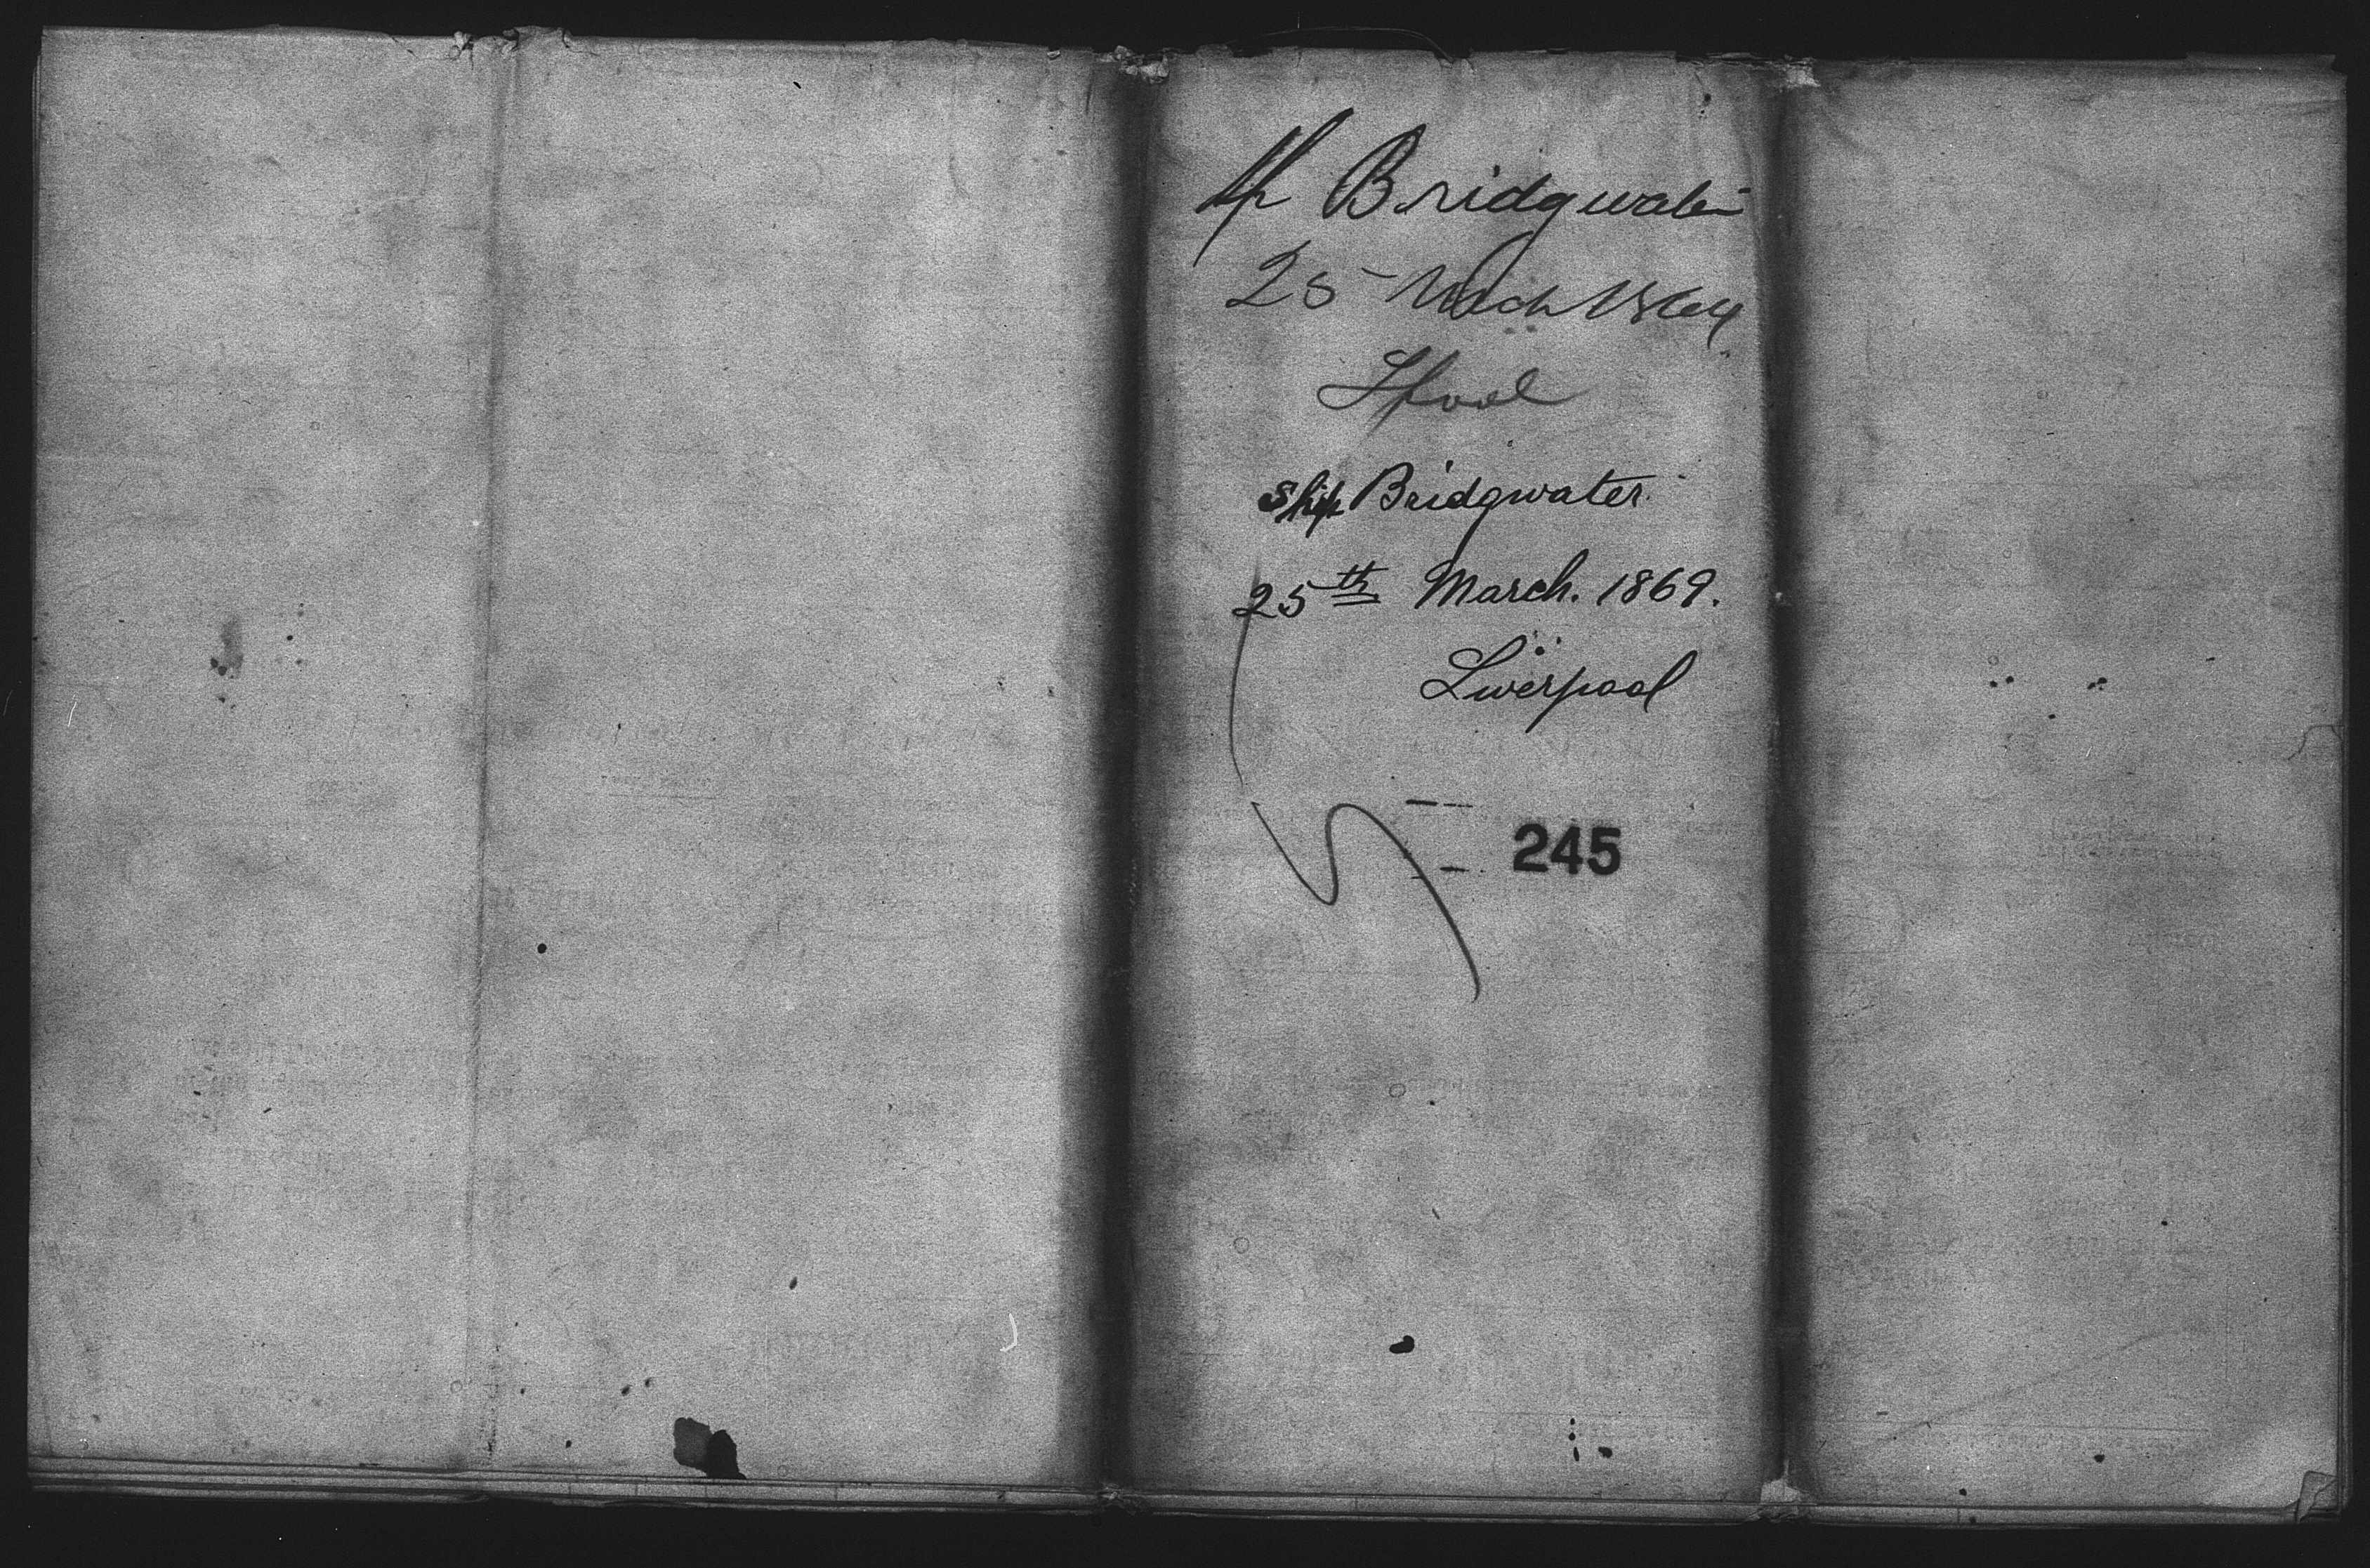 Sp Bridgwater
25 March 1869
Lpool
Ship Bridgwater
25th March. 1869.
Liverpool
245